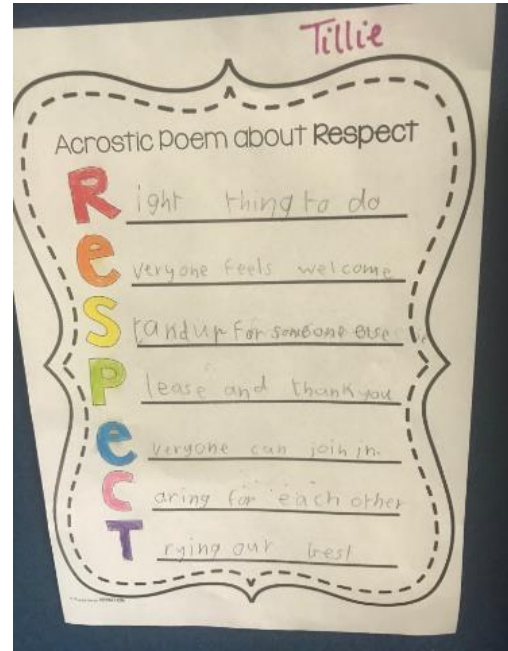 Tillie
Acrostic Poem about Respect
Right thing to do
everyone feels welcome
Standup for someone else
Please and thankyou
everyone can join in.
Caring for each other
Trying our best